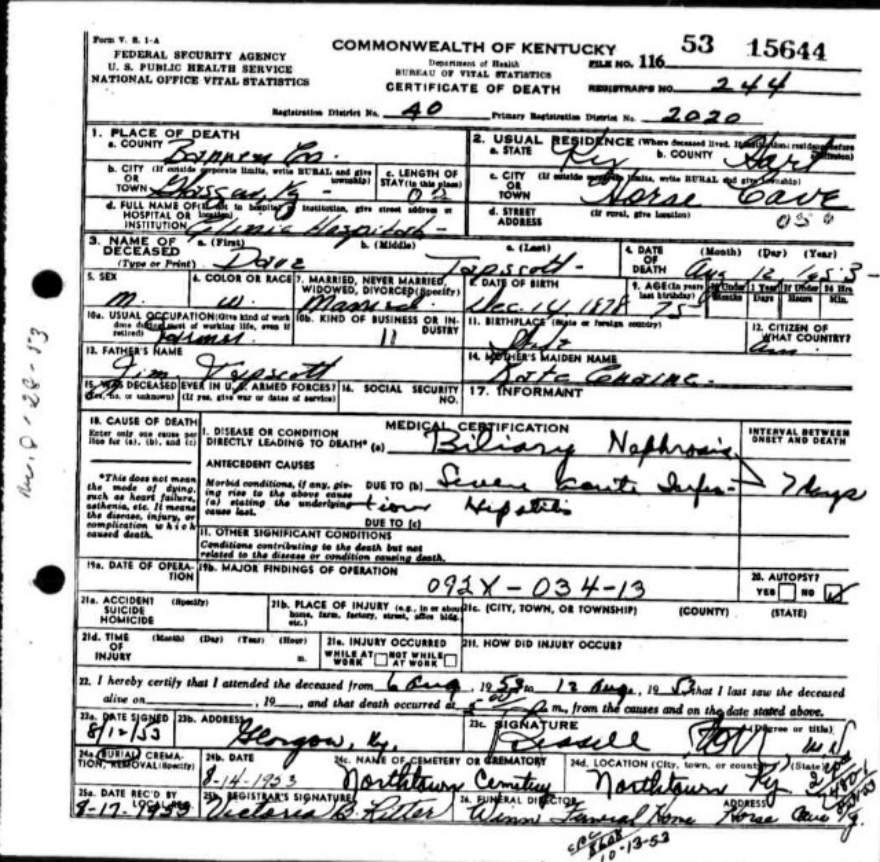 Form V. S. 1-A
FEDERAL SECURITY AGENCY
U. S. PUBLIC HEALTH SERVICE
NATIONAL OFFICE VITAL STATISTICS
COMMONWEALTH OF KENTUCKY
Department of Health
BUREAU OF VITAL STATISTICS
CERTIFICATE OF DEATH
FILE NO. 116 53 15644
REGISTRAR'S NO. 244
Registration District No. 40 Primary Registration District No. 2020
1. PLACE OF DEATH
a. COUNTY Barren Co.
2. USUAL RESIDENCE (Where deceased lived. If institution: residence before
a. STATE Ky b. COUNTY Hart
b. CITY (If outside corporate limits, write RURAL and give township)
OR
TOWN Glasgow, Ky -
c. LENGTH OF
STAY (in this place)
c. CITY (If outside corporate limits, write RURAL and give township)
OR
TOWN Horse Cave
050
d. FULL NAME OF (If not in hospital or institution, give street address or location)
HOSPITAL OR
INSTITUTION Clinic Hospital
d. STREET (If rural, give location)
ADDRESS
3. NAME OF a. (First) b. (Middle) c. (Last)
DECEASED
(Type or Print) Dave Tapscott
4. DATE (Month) (Day) (Year)
OF
DEATH Aug 12 1953
5. SEX
M.
6. COLOR OR RACE
W.
7. MARRIED, NEVER MARRIED,
WIDOWED, DIVORCED (Specify)
Married
8. DATE OF BIRTH
Dec. 14 1878
9. AGE (In years last birthday) 75
If Under 1 Year If Under 24 Hrs
Months Days Hours Min.
10a. USUAL OCCUPATION (Give kind of work done during most of working life, even if retired)
Farmer
10b. KIND OF BUSINESS OR INDUSTRY
11
11. BIRTHPLACE (State or foreign country)
12. CITIZEN OF
WHAT COUNTRY?
13. FATHER'S NAME
Jim Tapscott
14. MOTHER'S MAIDEN NAME
Kate
15. WAS DECEASED EVER IN U. S. ARMED FORCES?
(Yes, no, or unknown) (If yes, give war or dates of service)
16. SOCIAL SECURITY
NO.
17. INFORMANT
18. CAUSE OF DEATH
Enter only one cause per
line for (a), (b), and (c)
*This does not mean
the mode of dying,
such as heart failure,
asthenia, etc. It means
the disease, injury, or
complication which
caused death.
MEDICAL CERTIFICATION
I. DISEASE OR CONDITION
DIRECTLY LEADING TO DEATH* (a) Biliary Nephrosis
ANTECEDENT CAUSES
Morbid conditions, if any, giv-
ing rise to the above cause
(a) stating the underlying
cause last.
DUE TO (b) Severe acute Infec-
tious Hepatitis
DUE TO (c)
INTERVAL BETWEEN
ONSET AND DEATH
7 days
II. OTHER SIGNIFICANT CONDITIONS
Conditions contributing to the death but not
related to the disease or condition causing death.
19a. DATE OF OPERA-
TION
19b. MAJOR FINDINGS OF OPERATION
092X-034-13
20. AUTOPSY?
YES NO
21a. ACCIDENT (Specify)
SUICIDE
HOMICIDE
21b. PLACE OF INJURY (e.g., in or about
home, farm, factory, street, office bldg.
etc.)
21c. (CITY, TOWN, OR TOWNSHIP) (COUNTY) (STATE)
21d. TIME (Month) (Day) (Year) (Hour)
OF
INJURY m.
21e. INJURY OCCURRED
WHILE AT WORK NOT WHILE AT WORK
21f. HOW DID INJURY OCCUR?
22. I hereby certify that I attended the deceased from 6 Aug, 1953 to 12 Aug., 1953 that I last saw the deceased
alive on , 19 , and that death occurred at m., from the causes and on the date stated above.
23a. DATE SIGNED
8/12/53
23b. ADDRESS
Glasgow, Ky.
23c. SIGNATURE (Degree or title)
MD
24a. BURIAL, CREMA-
TION, REMOVAL (Specify)
24b. DATE
8-14-1953
24c. NAME OF CEMETERY OR CREMATORY
Northtown Cemetery
24d. LOCATION (City, town, or county) (State)
Northtown Ky
25a. DATE REC'D BY
LOCAL REG.
8-17-1953
25b. REGISTRAR'S SIGNATURE
Victoria B. Ritter
26. FUNERAL DIRECTOR ADDRESS
Winn Funeral Home Horse Cave Ky.
10-13-53